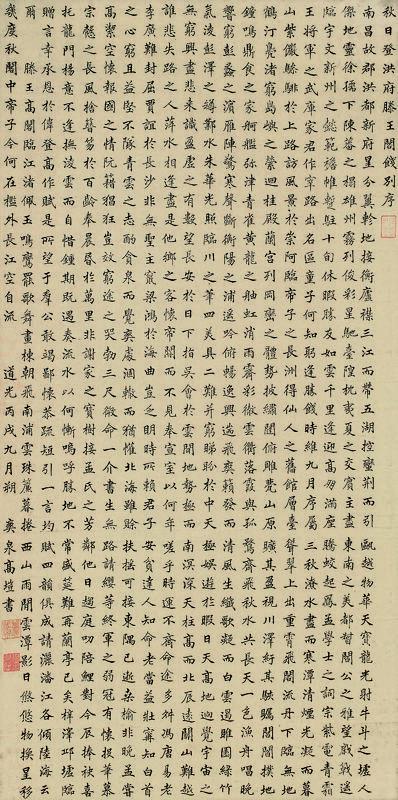 秋日登洪府滕王閣餞別序
南昌故郡洪都新府星分翼軫地接衡廬襟三江而帶五湖控蠻荆而引甌越物華天寶龍光射牛斗之墟人
傑地靈徐孺下陳蕃之榻雄州霧列俊彩星馳臺隍枕夷夏之交賓主盡東南之美都督閻公之雅望棨戟遥
臨宇文新州之懿範襜帷暫駐十旬休暇勝友如雲千里逢迎高朋滿座騰蛟起鳳孟學士之詞宗紫電青霜
王將軍之武庫家君作宰路出名區童子何知躬逢勝餞時維九月序屬三秋潦水盡而寒潭清煙光凝而暮
山紫儼驂騑於上路訪風景於崇阿臨帝子之長洲得仙人之舊館層臺聳翠上出重霄飛閣流丹下臨無地
鶴汀鳧渚窮島嶼之縈迴桂殿蘭宮列岡巒之體勢披繡闥俯雕甍山原曠其盈視川澤紆其駭矚閭閻撲地
鐘鳴鼎食之家舸艦弥津青雀黃龍之舳虹消雨霽彩徹雲衢落霞與孤鶩齊飛秋水共長天一色漁舟唱晚
響窮彭蠡之濱雁陣驚寒聲斷衡陽之浦遥吟俯暢逸興遄飛爽籟發而清風生纖歌凝而白雲遏睢園綠竹
氣淩彭澤之樽鄴水朱華光照臨川之筆四美具二難并窮睇眄於中天極娛遊於暇日天高地迥覺宇宙之
無窮興盡悲來識盈虛之有數望長安於日下指吳會於雲間地勢極而南溟深天柱高而北辰遠關山難越
誰悲失路之人萍水相逢盡是他鄉之客懷帝閽而不見奉宣室以何年嗟乎時運不齊命途多舛馮唐易老
李廣難封屈賈誼於長沙非無聖主竄梁鴻於海曲豈乏明時所賴君子安貧達人知命老當益壯寧知白首
之心窮且益堅不墜青雲之志酌貪泉而覺爽處涸轍而猶懽北海雖賒扶摇可接東隅已逝桑榆非晚孟嘗
高潔空懷報國之情阮籍猖狂豈效窮途之哭勃三尺微命一介書生無路請纓等終軍之弱冠有懷投筆慕
宗慤之長風捨簪笏於百齡奉晨昏於萬里非謝家之寶樹接孟氏之芳鄰他日趨庭叨陪鯉對今辰捧袂喜
托龍門楊意不逢撫凌雲而自惜鍾期既遇奏流水以何慚嗚呼勝地不常盛筵難再蘭亭已矣梓澤邱墟臨
贈言幸承恩於偉餞登高作賦是所望於羣公敢竭鄙懷恭疏短引一言均賦四韻俱成請灑潘江各傾陸海云
爾 滕王高閣臨江渚佩玉鳴鸞罷歌舞畫棟朝飛南浦雲珠簾暮捲西山雨閒雲潭影日悠悠物換星移
幾度秋閣中帝子今何在檻外長江空自流 道光丙戌九月朔 爽泉高塏書